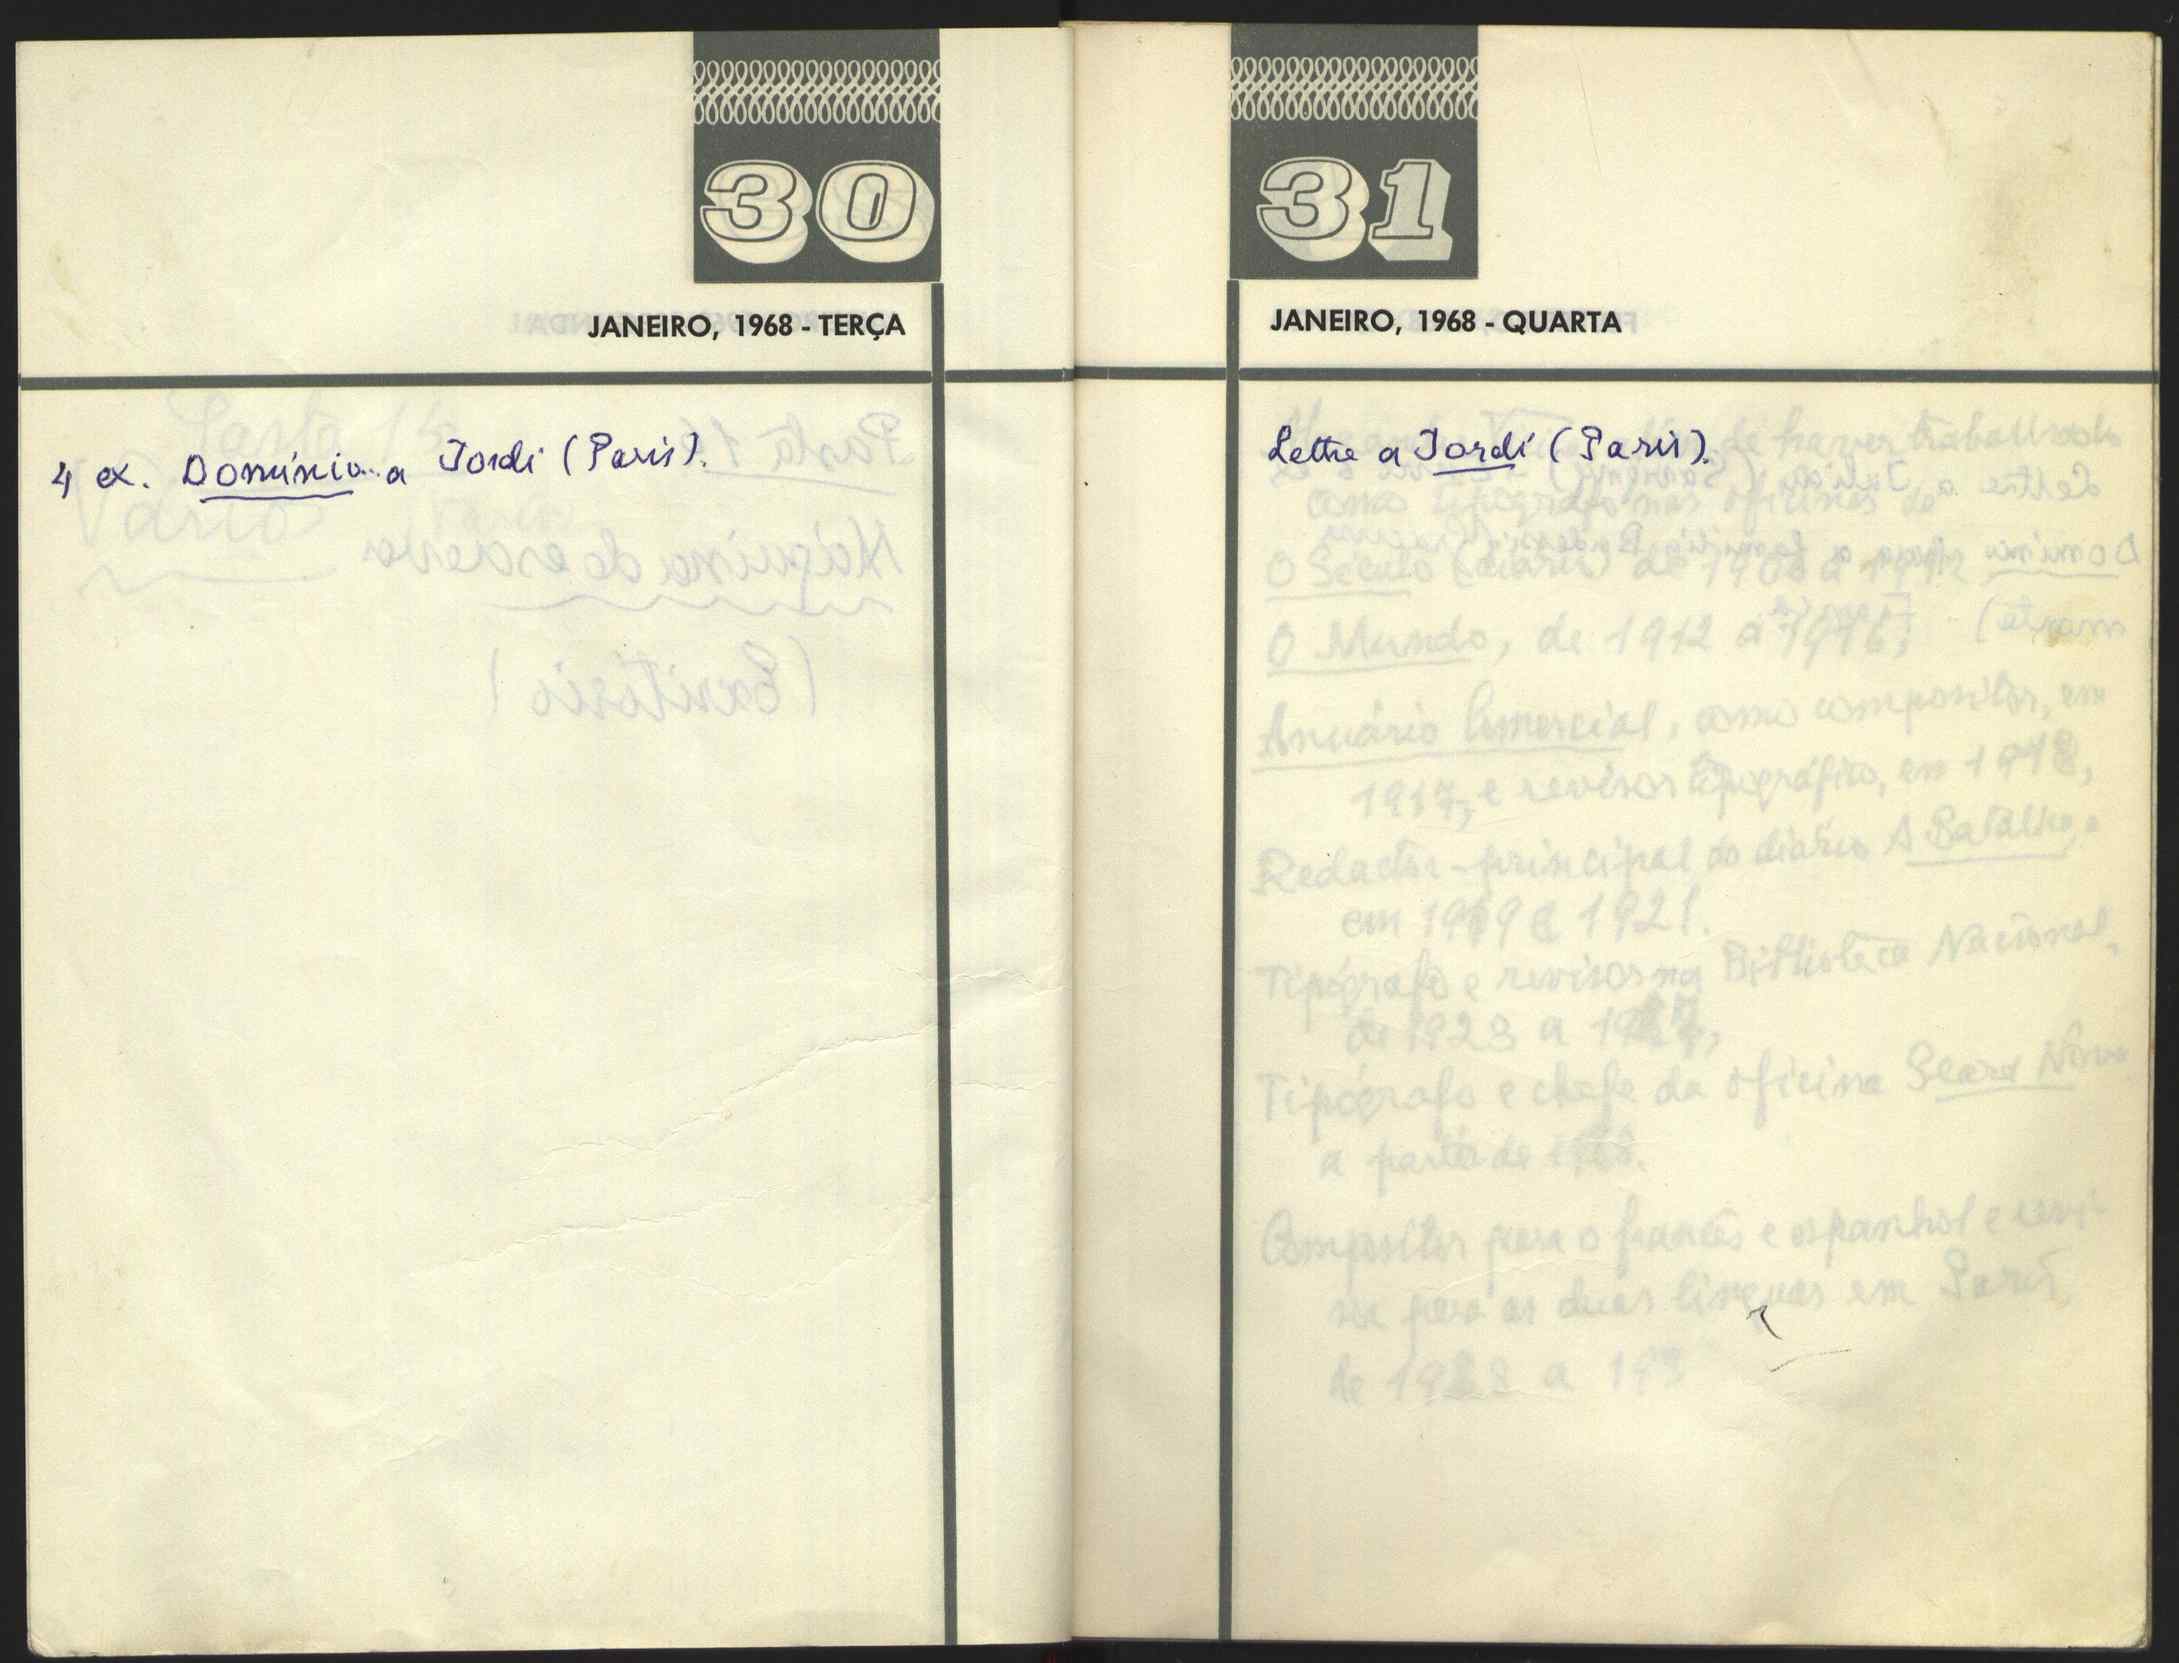 30
JANEIRO, 1968 - TERÇA
4 ex. Domínio a Jordi (Paris).
Pasta 1
Vários
Máquina de escrever
(Escritório)
31
JANEIRO, 1968 - QUARTA
Lettre a Jordi (Paris).
de haver trabalhado
como tipógrafo nas oficinas de
O Século (diário) de 1908 a 1912
O Mundo, de 1912 a 1916,
Anuário Comercial, como compositor, em
1917, e revisor tipográfico, em 1918,
Redactor-principal do diário A Batalha,
em 1919 e 1921.
Tipógrafo e revisor na Biblioteca Nacional,
de 1923 a
Tipógrafo e chefe da oficina Seara Nova
a partir de
Compositor para o francês e espanhol e
para as duas línguas em Paris,
de